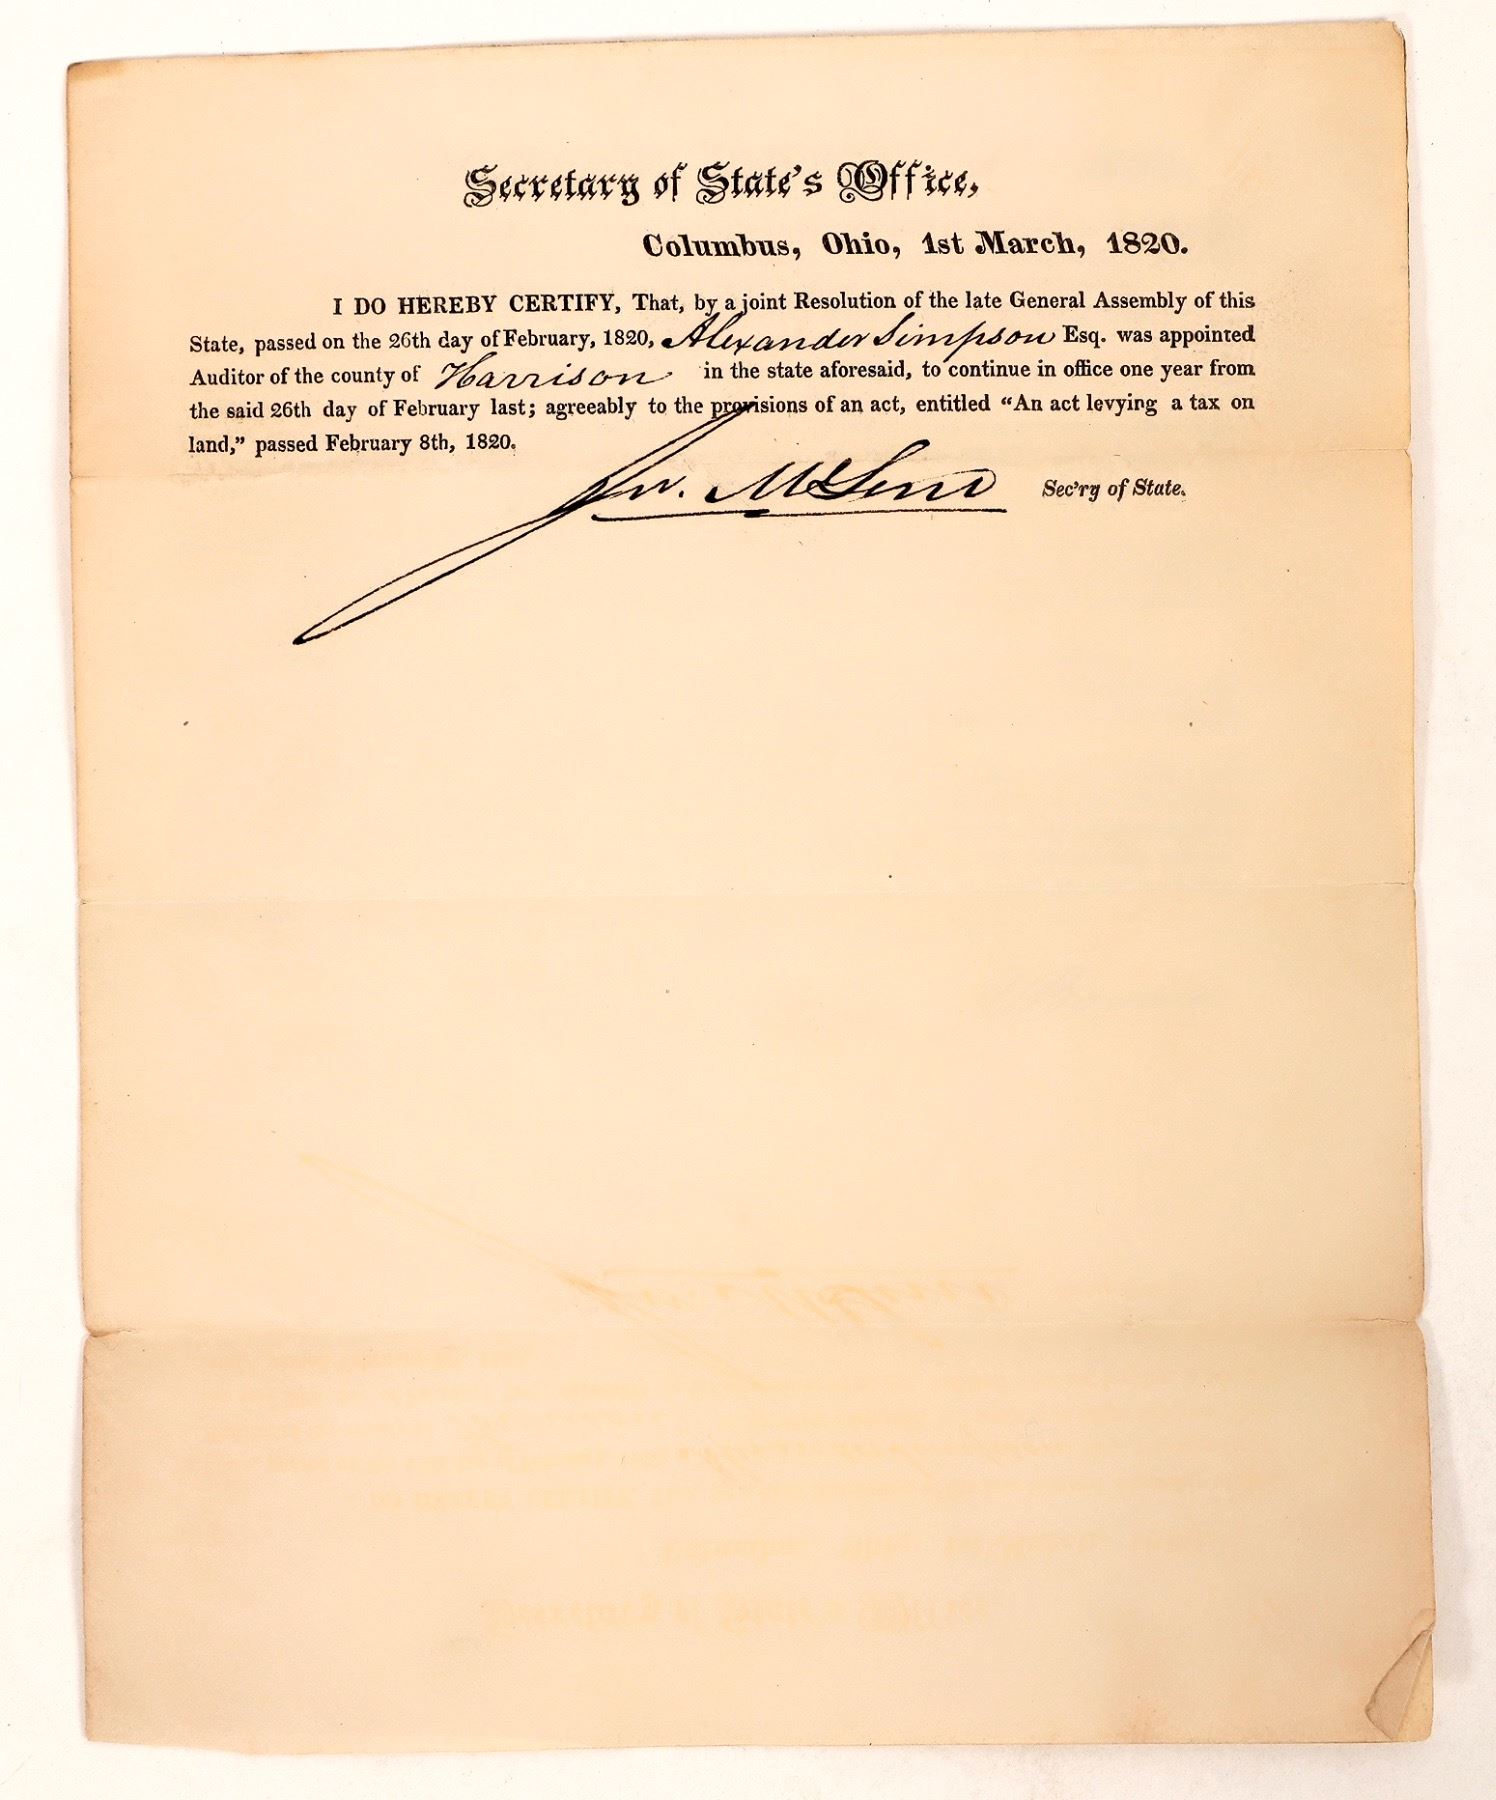 Secretary of State's Office,
Columbus, Ohio, 1st March, 1820.
I DO HEREBY CERTIFY, That, by a joint Resolution of the late General Assembly of this
State, passed on the 26th day of February, 1820, Alexander Simpson Esq. was appointed
Auditor of the county of Harrison in the state aforesaid, to continue in office one year from
the said 26th day of February last; agreeably to the provisions of an act, entitled “An act levying a tax on
land,” passed February 8th, 1820.
Sec'ry of State.